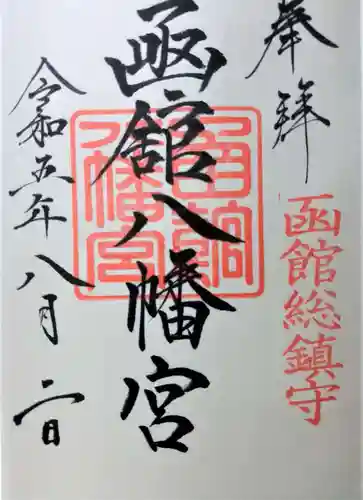 奉拝
函館総鎮守
函館八幡宮
函館八幡宮
令和五年八月二日